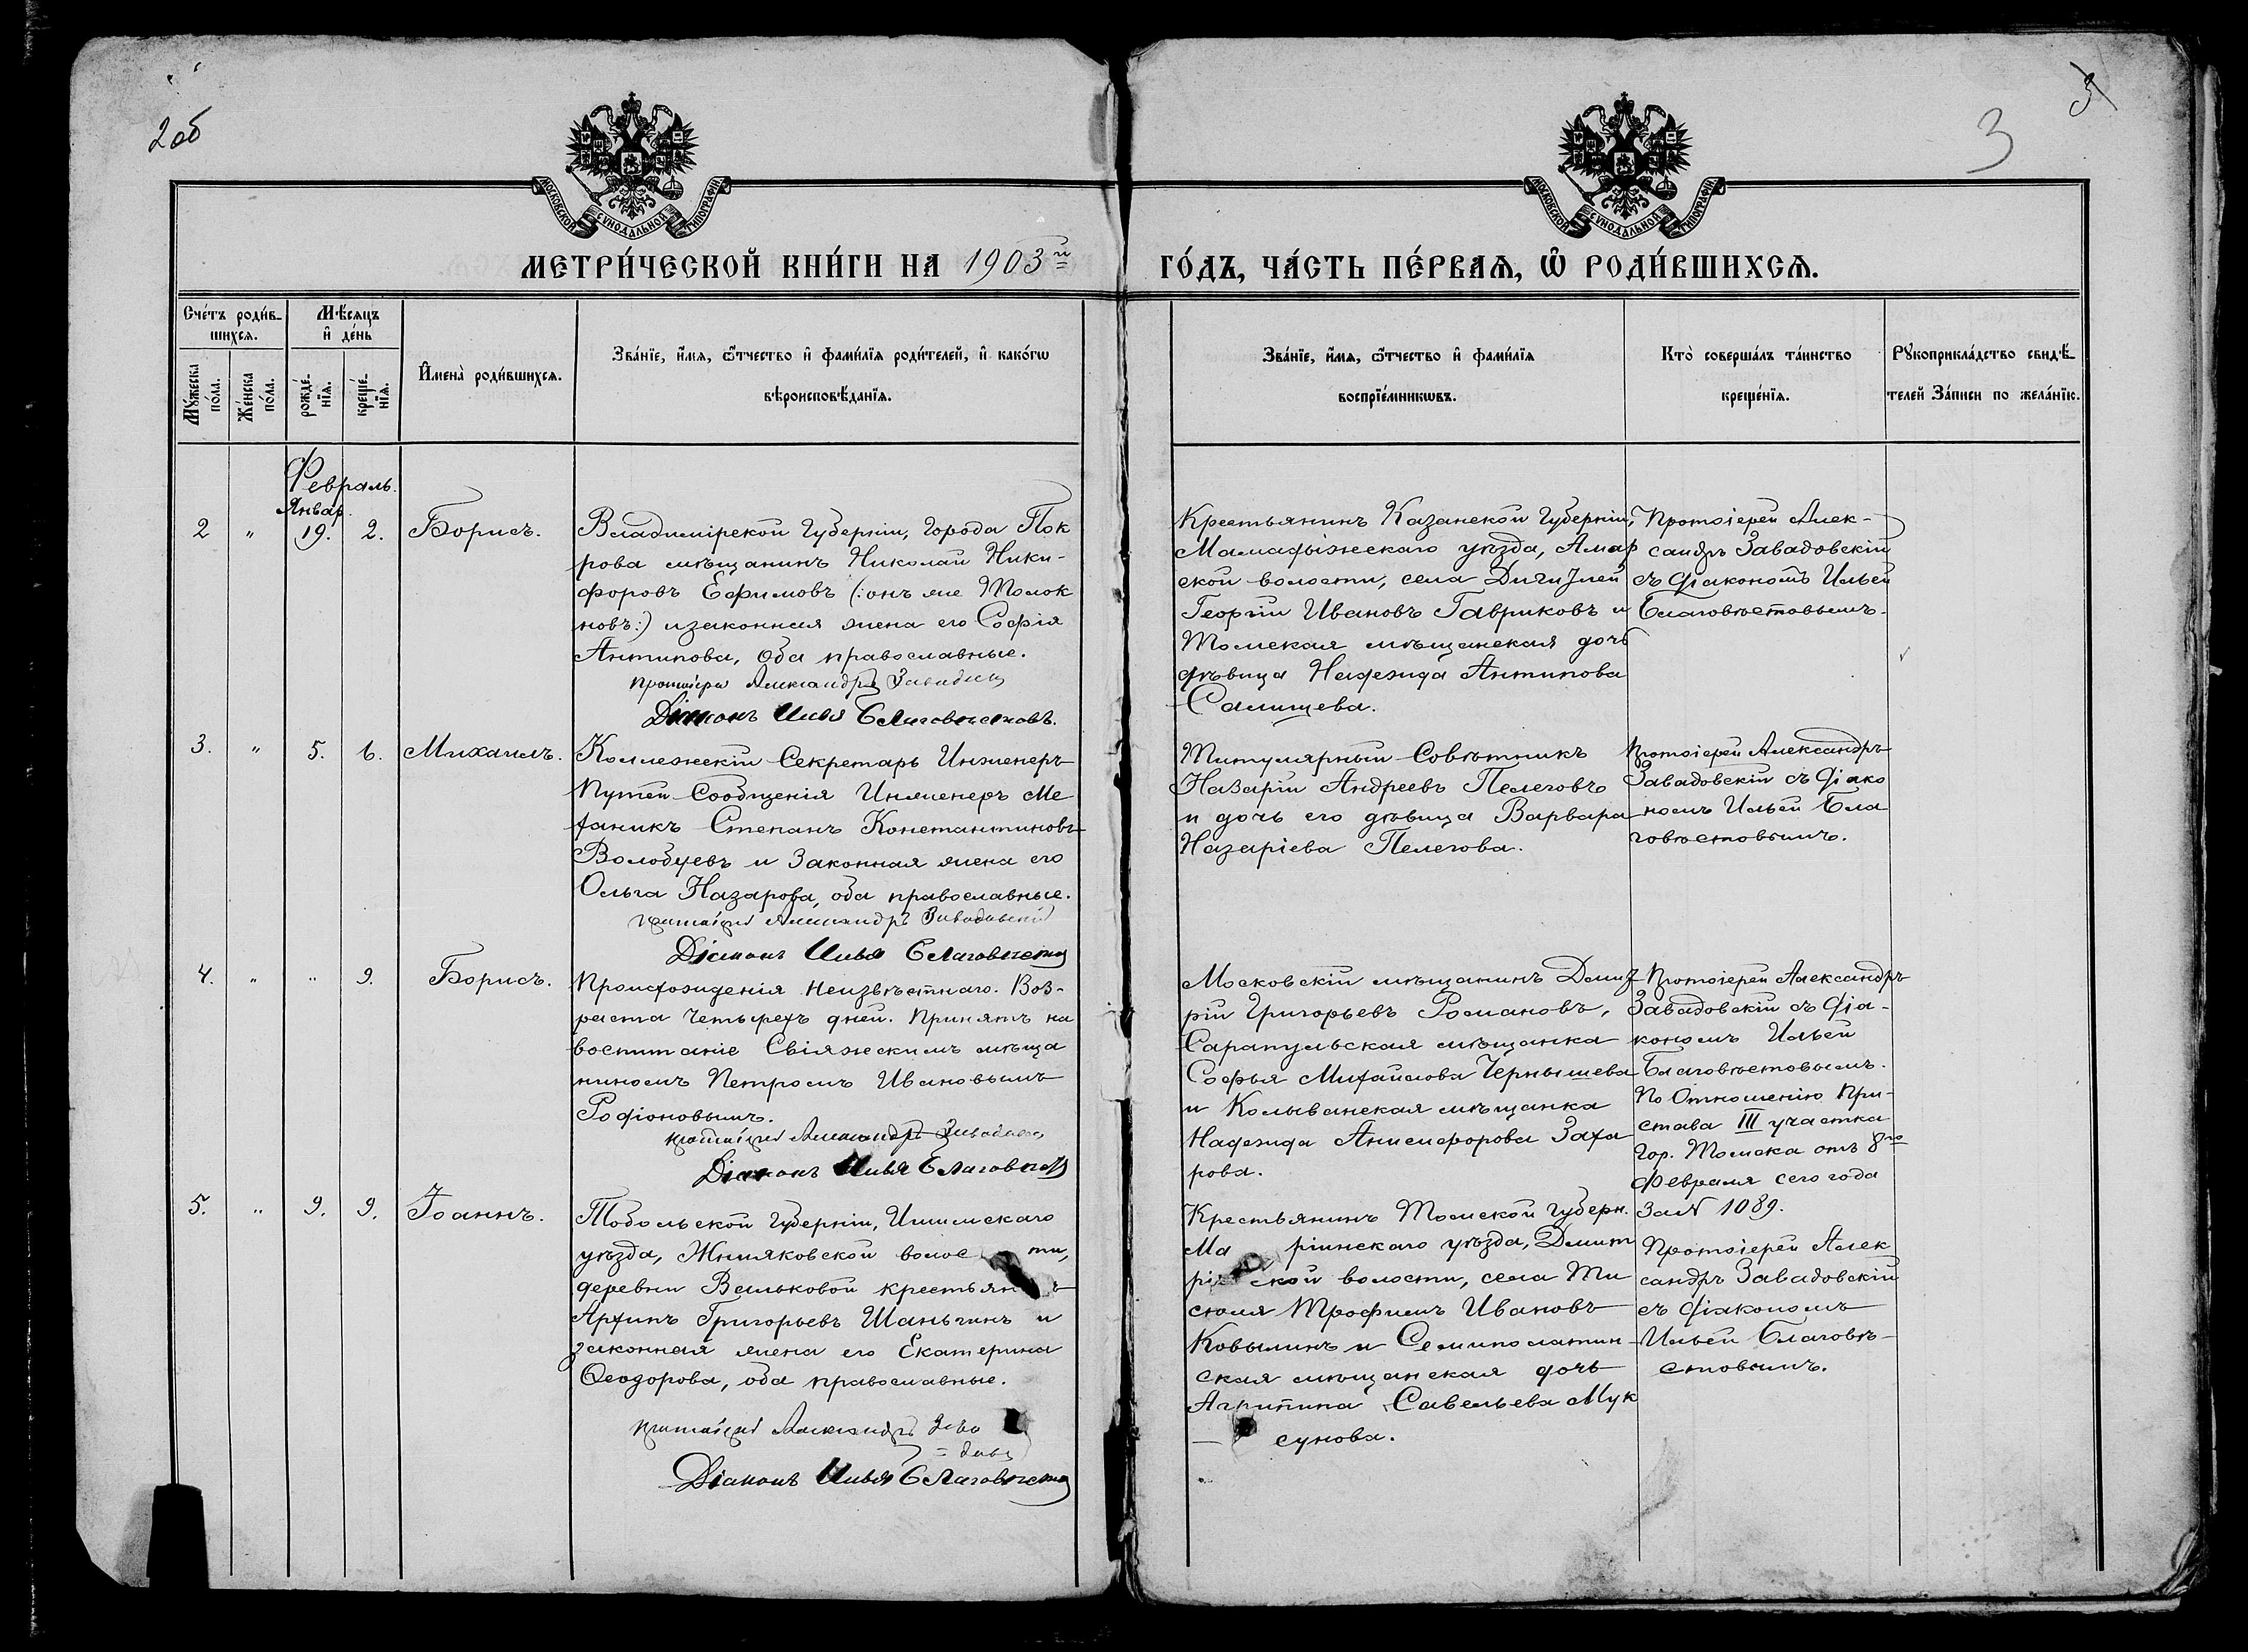 2об
3
3
МОСКОВСКОЙ СѴНОДАЛЬНОЙ ТИПОГРАФІИ
МОСКОВСКОЙ СѴНОДАЛЬНОЙ ТИПОГРАФІИ
МЕТРИ́ЧЕСКОЙ КНИ́ГИ НА 1903й
ГО́ДЪ, ЧА́СТЬ ПЕ́РВАѦ, Ѡ РОДИ́ВШИХСѦ.
Сче́тъ роди́в-
шихсѧ.
Мѣ́сѧцъ
и҆ де́нь
Мꙋ́жеска
по́ла.
Же́нска
по́ла.
рожде́-
нїѧ.
креще́-
нїѧ.
И҆мена̀ роди́вшихсѧ.
Зва́нїе, и҆́мѧ, ѻ҆́тчество и҆ фами́лїѧ роди́телей, и҆ како́гѡ
вѣроисповѣ́данїѧ.
Зва́нїе, и҆́мѧ, ѻ҆́тчество и҆ фами́лїѧ
воспрїе́мникѡвъ.
Кто̀ соверша́лъ та́инство
креще́нїѧ.
Рꙋкоприкла́дство свидѣ́-
телей За́писи по жела́нїю.
Февраль.
Январ.
2 " 19. 2. Борисъ.
Владимірской Губерніи, Города Пок
рова мѣщанинъ Николай Ники-
форовъ Ефимовъ (: онъ же Молок
новъ :) и законная жена его Софія
Антипова, оба православные.
Протоіерей Александръ
Діаконъ Илья Благовѣстовъ.
Крестьянинъ Казанской Губерніи,
Мамадыжскаго уѣзда, Амар
ской волости, села
Георгій Ивановъ Гавриковъ и
Томская мѣщанская дочь
дѣвица Надежда Антипова
Протоіерей Алек-
сандръ Завадовскій
съ діакономъ Ильей
Благовѣстовымъ.
3. " 5. 6. Михаилъ.
Коллежскій Секретарь Инженеръ
Путей Сообщенія Инженеръ Ме
ханикъ Степанъ Константиновъ
Волобуевъ и Законная жена его
Ольга Назарова, оба православные.
Протоіерей Александръ Завадовскій
Діаконъ Илья Благовѣстовъ
Титулярный Совѣтникъ
Назарій Андреевъ Пелеговъ
и дочь его дѣвица Варвара
Назаріева Пелегова.
Протоіерей Александръ
Завадовскій съ діако
номъ Ильей Бла
говѣстовымъ.
4. " " 9. Борисъ.
Происхожденія Неизвѣстнаго. Воз-
раста Четырехъ дней. Принятъ на
воспитаніе Свіяжскимъ мѣща
ниномъ Петромъ Ивановымъ
Родіоновымъ.
Протоіерей Александръ
Діаконъ Илья Благовѣстовъ
Московскій мѣщанинъ Дмит
рій Григорьевъ Романовъ,
Сарапульская мѣщанка
Софья Михайлова Чернышева
и Колыванская мѣщанка
Надежда Анисифорова Заха
рова.
Протоіерей Александръ
Завадовскій съ діа-
кономъ Ильей
Благовѣстовымъ.
По Отношенію При-
става III участка
Гор. Томска отъ 8го
Февраля сего года
За № 1089.
5. " 9. 9. Іоаннъ.
Тобольской Губерніи, Ишимскаго
уѣзда, Жиляковской волос ти,
деревни Вальковой крестьян ъ
Архипъ Григорьевъ Шаньгинъ и
законная жена его Екатерина
Ѳеодорова, оба православные.
Протоіерей Александръ Зава
= довс
Діаконъ Илья Благовѣстовъ
Крестьянинъ Томской Губерн.
Ма ріинскаго уѣзда, Дмит
рі ской волости, села Ти
сюля Трофимъ Ивановъ
Ковылинъ и Семиполатин-
ская мѣщанская дочь
Агрипина Савельева Мук
— сунова.
Протоіерей Алек
сандръ Завадовскій
съ діакономъ
Ильей Благовѣ-
стовымъ.